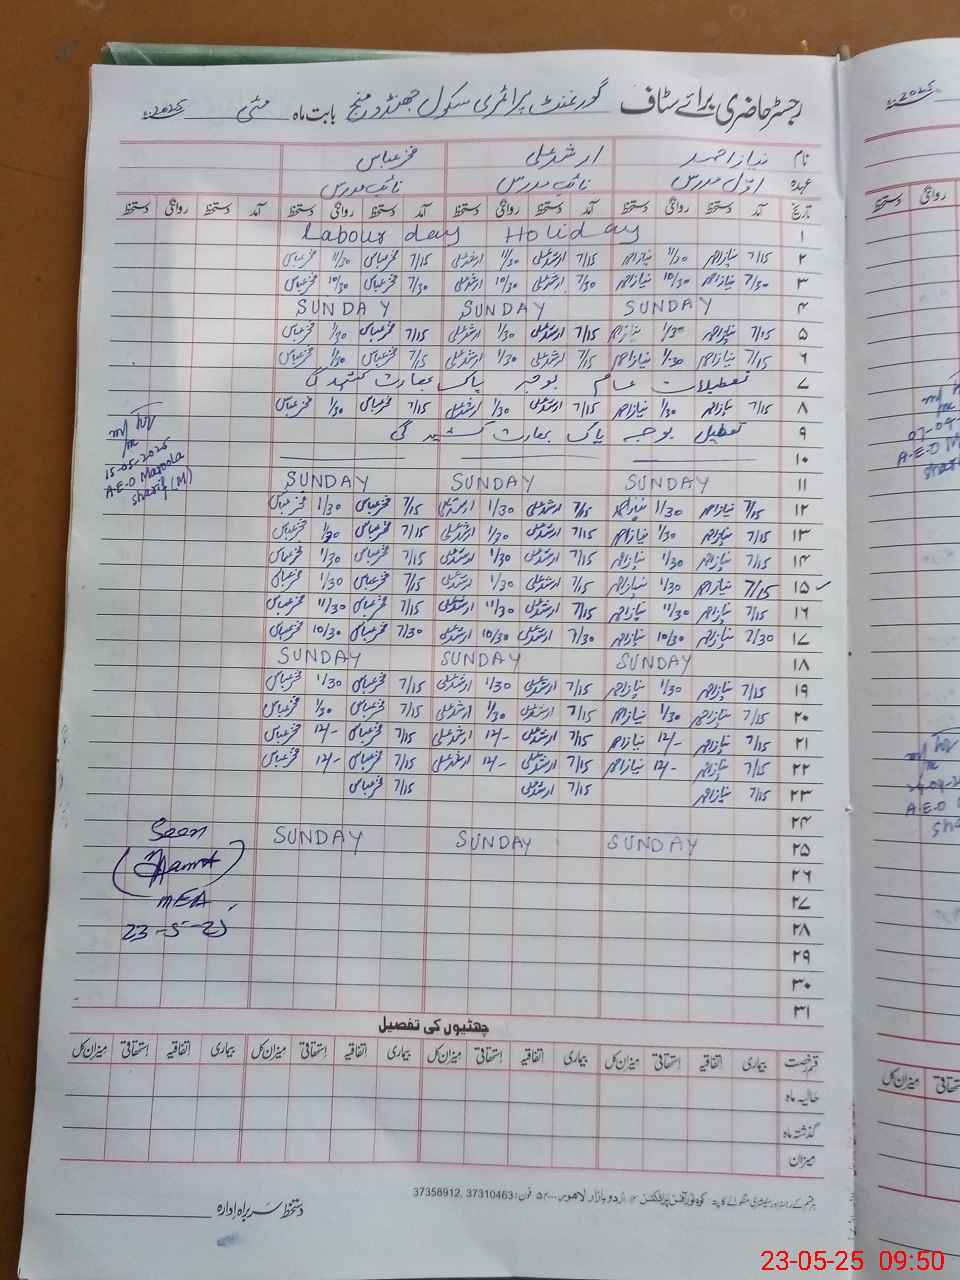 رجسٹر حاضری برائے سٹاف گورنمنٹ پرائمری سکول جھنڈو منج بابت ماہ مئی 2025ء
نام نیاز احمد ارشد علی فخر عباس
عہدہ اوّل مدرس نائب مدرس نائب مدرس
تاریخ آمد دستخط روانگی دستخط آمد دستخط روانگی دستخط آمد دستخط روانگی دستخط آمد دستخط روانگی دستخط
۱ Labour day Holiday
۲ 7/15 نیاز احمد 11/30 نیاز احمد 7/15 ارشد علی 11/30 ارشد علی 7/15 فخر عباس 11/30 فخر عباس
۳ 7/30 نیاز احمد 10/30 نیاز احمد 7/30 ارشد علی 10/30 ارشد علی 7/30 فخر عباس 10/30 فخر عباس
۴ SUNDAY SUNDAY SUNDAY
۵ 7/15 نیاز احمد 1/30 نیاز احمد 7/15 ارشد علی 1/30 ارشد علی 7/15 فخر عباس 1/30 فخر عباس
۶ 7/15 نیاز احمد 1/30 نیاز احمد 7/15 ارشد علی 1/30 ارشد علی 7/15 فخر عباس 1/30 فخر عباس
۷ تعطیلات عام بوجہ پاک بھارت کشیدگی
۸ 7/15 نیاز احمد 1/30 نیاز احمد 7/15 ارشد علی 1/30 ارشد علی 7/15 فخر عباس 1/30 فخر عباس
۹ تعطیل بوجہ پاک بھارت کشیدگی
۱۰
۱۱ SUNDAY SUNDAY SUNDAY
15-05-2025
A.E.O Maroola
sharif (M)
۱۲ 7/15 نیاز احمد 1/30 نیاز احمد 7/15 ارشد علی 1/30 ارشد علی 7/15 فخر عباس 1/30 فخر عباس
۱۳ 7/15 نیاز احمد 1/30 نیاز احمد 7/15 ارشد علی 1/30 ارشد علی 7/15 فخر عباس 1/30 فخر عباس
۱۴ 7/15 نیاز احمد 1/30 نیاز احمد 7/15 ارشد علی 1/30 ارشد علی 7/15 فخر عباس 1/30 فخر عباس
۱۵ 7/15 نیاز احمد 1/30 نیاز احمد 7/15 ارشد علی 1/30 ارشد علی 7/15 فخر عباس 1/30 فخر عباس
۱۶ 7/15 نیاز احمد 11/30 نیاز احمد 7/15 ارشد علی 11/30 ارشد علی 7/15 فخر عباس 11/30 فخر عباس
۱۷ 7/30 نیاز احمد 10/30 نیاز احمد 7/30 ارشد علی 10/30 ارشد علی 7/30 فخر عباس 10/30 فخر عباس
۱۸ SUNDAY SUNDAY SUNDAY
۱۹ 7/15 نیاز احمد 1/30 نیاز احمد 7/15 ارشد علی 1/30 ارشد علی 7/15 فخر عباس 1/30 فخر عباس
۲۰ 7/15 نیاز احمد 1/30 نیاز احمد 7/15 ارشد علی 1/30 ارشد علی 7/15 فخر عباس 1/30 فخر عباس
۲۱ 7/15 نیاز احمد 12/- نیاز احمد 7/15 ارشد علی 12/- ارشد علی 7/15 فخر عباس 12/- فخر عباس
۲۲ 7/15 نیاز احمد 12/- نیاز احمد 7/15 ارشد علی 12/- ارشد علی 7/15 فخر عباس 12/- فخر عباس
۲۳ 7/15 نیاز احمد 7/15 ارشد علی 7/15 فخر عباس
۲۴
۲۵ SUNDAY SUNDAY SUNDAY
Seen
MEA
23-5-25
۲۶
۲۷
۲۸
۲۹
۳۰
۳۱
چھٹیوں کی تفصیل
قسم رخصت بیماری اتفاقیہ استحقاقی میزان کل بیماری اتفاقیہ استحقاقی میزان کل بیماری اتفاقیہ استحقاقی میزان کل بیماری اتفاقیہ استحقاقی میزان کل
حالیہ ماہ
گذشتہ ماہ
میزان
اردو بازار لاہور فون: 37310463, 37358912
دستخط سربراہ ادارہ
23-05-25 09:50